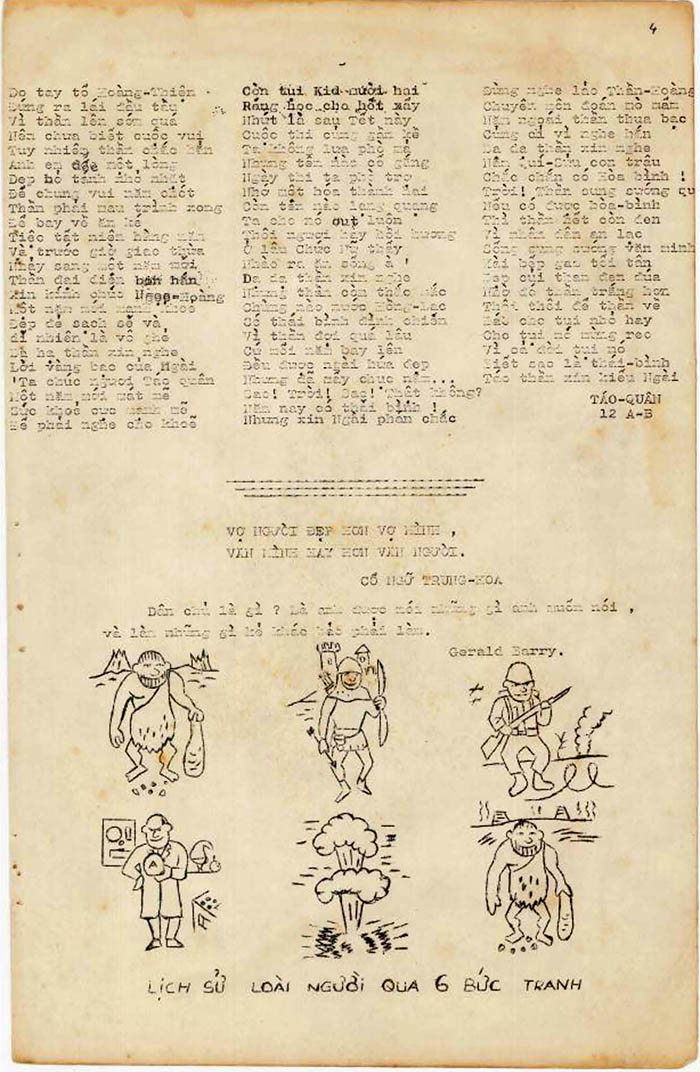 4
Do tay tổ Hoàng-Thiện
Đứng ra lái đầu tàu
Vì thần lên sớm quá
Nên chưa biết cuộc vui
Tuy nhiên thần chắc hẳn
Anh em một lòng
Dẹp bỏ tánh nhỏ nhặt
Để chung vui năm chót
Thần phải mau trình xong
Để bay về ăn ké
Tiệc tất niên hằng năm
Và trước giờ giao thừa
Nhảy sang một năm mới
Thần đại diện
Xin kính chúc Ngọc-Hoàng
Một năm mới mạnh khoẻ
Đẹp đẽ sạch sẽ và
dĩ nhiên là vô phê
Dạ hạ thần xin nghe
Lời vàng bạc của Ngài
'Ta chúc ngươi Táo quân
Một năm mới mát mẻ
Sức khoẻ cực mạnh mẽ
Để phải nghe cho khoẻ
Còn tụi Kid mười hai
Ráng học cho hốt xẩy
Nhứt là sau Tết này
Cuộc thi cũng gần kề
Ta không lựa phò mã
Nhưng tên nào cố gắng
Ngày thi ta phò trợ
Nhớ một hóa thành hai
Còn tên nào lang quang
Ta cho nó out luôn
Thôi ngươi hãy hồi hương
Ở lâu Chức Nữ thấy
Nhào ra ăn sống à !
Dạ dạ thần xin nghe
Nhưng thần còn thắc mắc
Chừng nào nước Hồng-Lạc
Có thái bình đình chiến
Vì thần đợi quá lâu
Cứ mỗi năm bay lên
Đều được ngài hứa đẹp
Nhưng đã mấy chục năm...
Sao! Trời! Sao! Thật không?
Năm nay có thái bình !
Nhưng xin Ngài phán chắc
Đừng nghe lão Thần-Hoàng
Chuyên môn đoán mò mẫm
Năm ngoái thần thua bạc
Cũng chỉ vì nghe hắn
Dạ dạ thần xin nghe
Năm Quí-Sửu con trâu
Chắc chắn có Hòa bình !
Trời! Thần sung sướng qu
Nếu có được hòa-bình
Thì thần hết còn đen
Vì nhân dân an lạc
Sống sung sướng văn minh
Xài bếp gas tối tân
Dẹp củi than đen đúa
Mặt đỏ thần trắng hơn
Thôi thôi để thần về
Báo cho tụi nhỏ hay
Cho tụi nó mừng reo
Vì cả đời tụi nó
Biết sao là thái-bình
Táo thần xin kiếu Ngài
TÁO-QUÂN
12 A-B
VỢ NGƯỜI ĐẸP HƠN VỢ MÌNH ,
VĂN MÌNH HAY HƠN VĂN NGƯỜI.
CỔ NGỮ TRUNG-HOA
Dân chủ là gì ? Là anh được nói những gì anh muốn nói ,
và làm những gì kẻ khác bắt phải làm.
Gerald Barry.
A
LỊCH SỬ LOÀI NGƯỜI QUA 6 BỨC TRANH